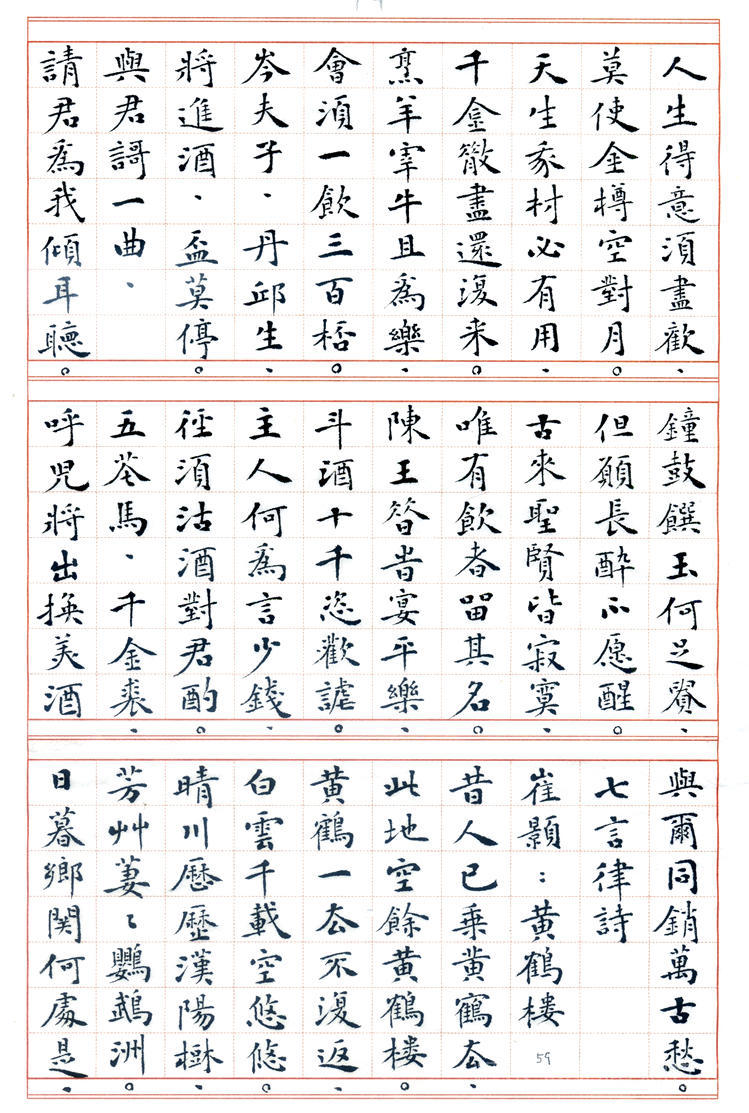 人生得意須盡歡、
莫使金樽空對月。
天生我材必有用、
千金散盡還復来。
烹羊宰牛且為樂、
會須一飲三百杯。
岑夫子、丹邱生、
將進酒、盃莫停。
與君謌一曲、
請君為我傾耳聽。
鐘鼓饌玉何足貴、
但願長醉不愿醒。
古來聖賢皆寂寞、
唯有飲者留其名。
陳王昝昔宴平樂、
斗酒十千恣歡謔。
主人何為言少錢、
徑須沽酒對君酌。
五花馬、千金裘、
呼児將出換美酒
與爾同銷萬古愁。
七言律詩
崔顥：黄鶴楼
59
昔人已乗黄鶴去、
此地空餘黄鶴楼。
黄鶴一去不復返、
白雲千載空悠悠。
晴川歷歷漢陽樹、
芳艸萋〻鸚鵡洲。
日暮鄉関何處是、